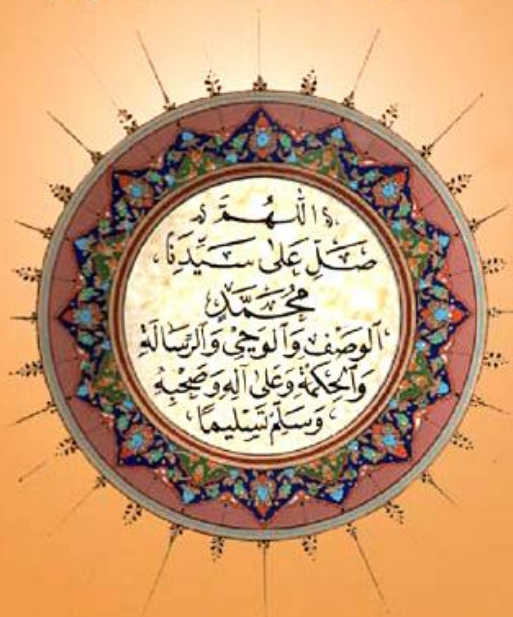 اللَّهُمَّ
صَلِّ عَلَى سَيِّدِنَا
مُحَمَّدٍ
الوَصْفِ وَالوَحْيِ وَالرِّسَالَةِ
وَالحِكْمَةِ وَعَلَى آلِهِ وَصَحْبِهِ
وَسَلِّمْ تَسْلِيمًا